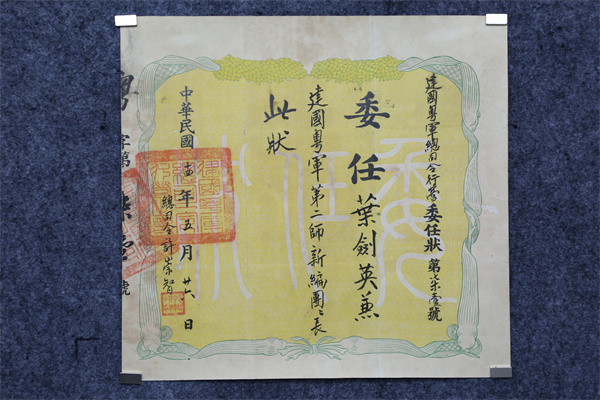 建國粵軍總司令行營委任狀第柒壹號
委任葉劍英兼
建國粵軍第二師新編團團長
此狀
中華民國十四年五月廿六日
總司令許崇智
委任狀